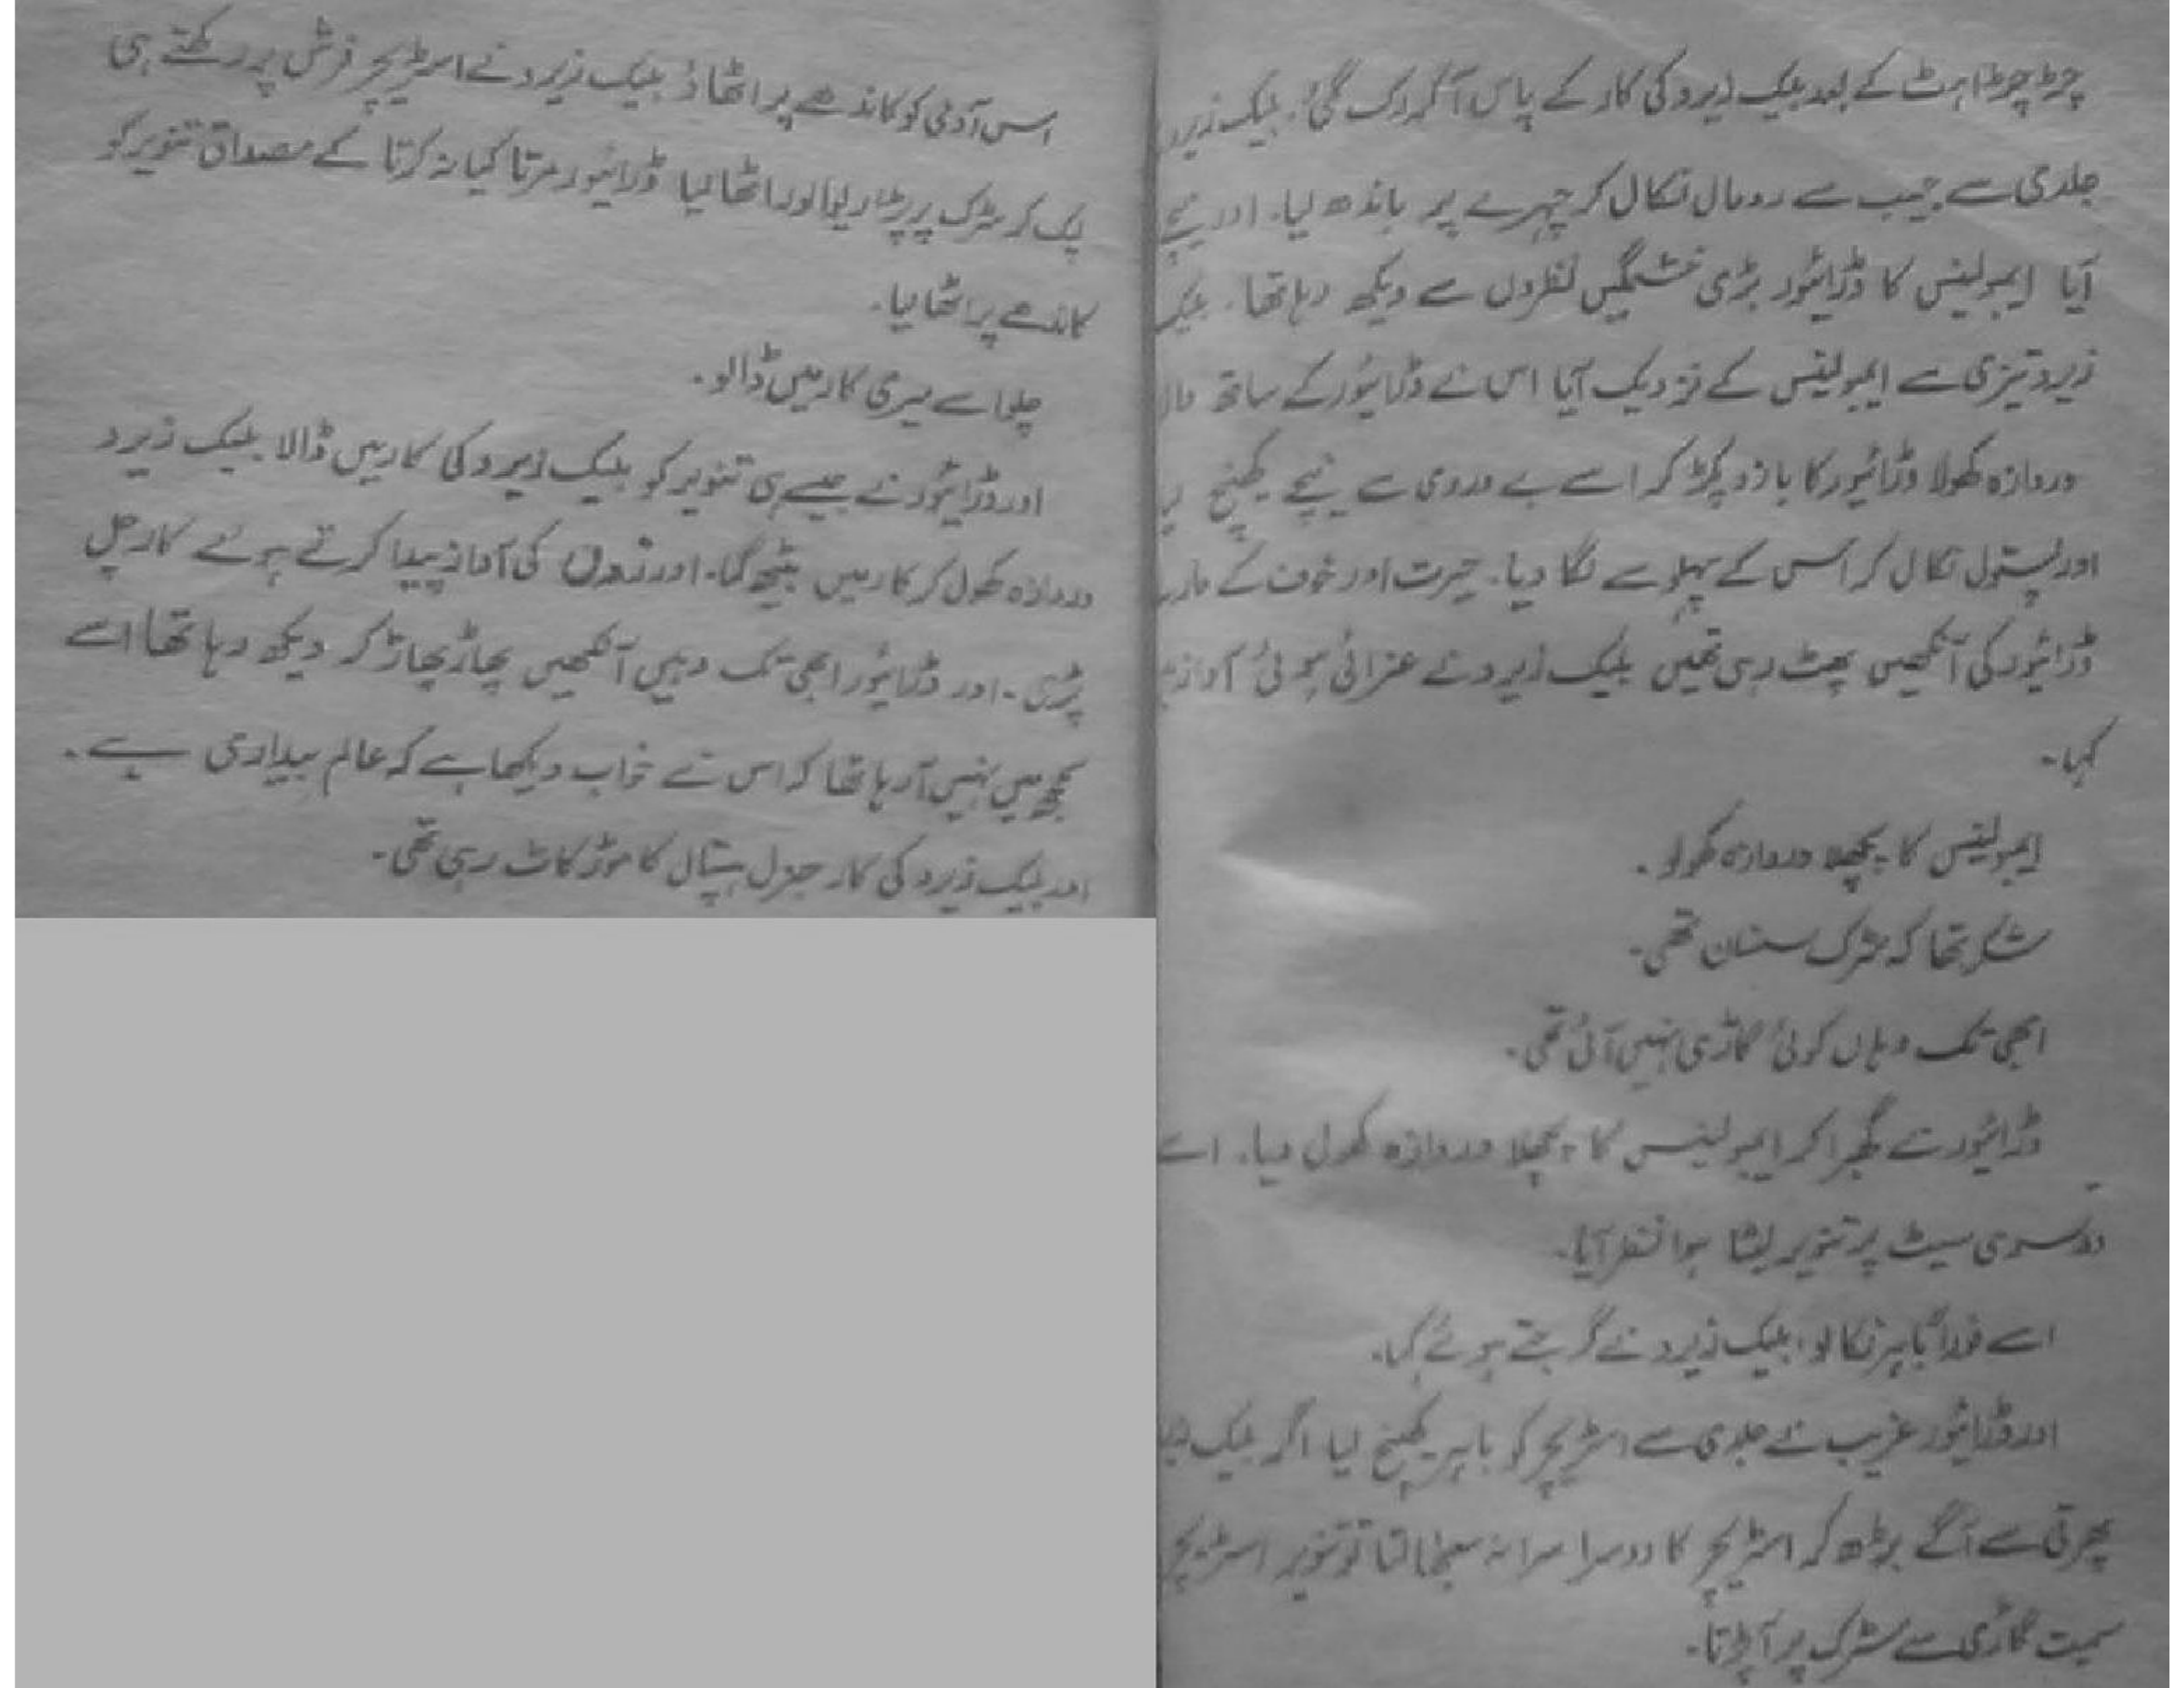 چڑچڑاہٹ کے بعد بلیک زیرو کی کار کے پاس آکر رک گئی۔ بلیک زیرو
جلدی سے جیب سے رومال نکال کر چہرے پر باندھ لیا۔ اور نیچے
آیا ایمبولینس کا ڈرائیور بڑی خشمگیں نظروں سے دیکھ رہا تھا۔ بلیک
زیرو تیزی سے ایمبولینس کے نزدیک آیا اس نے ڈرائیور کے ساتھ
دروازہ کھولا ڈرائیور کا بازو پکڑ کر اسے بے دردی سے نیچے کھینچ
اور پستول نکال کر اس کے پہلو سے لگا دیا۔ حیرت اور خوف کے مارے
ڈرائیور کی آنکھیں پھٹ رہی تھیں بلیک زیرو نے غرائی ہوئی آواز
کہا۔
ایمبولینس کا پچھلا دروازہ کھولو۔
شکر تھا کہ سڑک سنسان تھی۔
ابھی تک وہاں کوئی گاڑی نہیں آئی تھی۔
ڈرائیور نے گھبرا کر ایمبولینس کا پچھلا دروازہ کھول دیا۔ اسے
دوسری سیٹ پر تنویر لیٹا ہوا نظر آیا۔
اسے فوراً باہر نکالو۔ بلیک زیرو نے گرجتے ہوئے کہا۔
اور ڈرائیور غریب نے جلدی سے اسٹریچر کو باہر کھینچ لیا اگر بلیک
پھرتی سے آگے بڑھ کر اسٹریچر کا دوسرا سرا نہ سنبھالتا تو تنویر اسٹریچر
سمیت گاڑی سے سڑک پر آ پڑتا۔
اس آدمی کو کاندھے پر اٹھاؤ بلیک زیرو نے اسٹریچر فرش پر رکھتے ہی
لپک کر سڑک پر پڑا ریوالور اٹھا لیا ڈرائیور مرتا کیا نہ کرتا کے مصداق تنویر کو
کاندھے پر اٹھا لیا۔
چلو اسے میری کار میں ڈالو۔
اور ڈرائیور نے جیسے ہی تنویر کو بلیک زیرو کی کار میں ڈالا بلیک زیرو
دروازہ کھول کر کار میں بیٹھ گیا۔ اور زوں کی آواز پیدا کرتے ہوئے کار چل
پڑی۔ اور ڈرائیور ابھی تک وہیں آنکھیں پھاڑ پھاڑ کر دیکھ رہا تھا اسے
سمجھ میں نہیں آ رہا تھا کہ اس نے خواب دیکھا ہے کہ عالم بیداری ہے۔
اور بلیک زیرو کی کار جنرل ہسپتال کا موڑ کاٹ رہی تھی۔